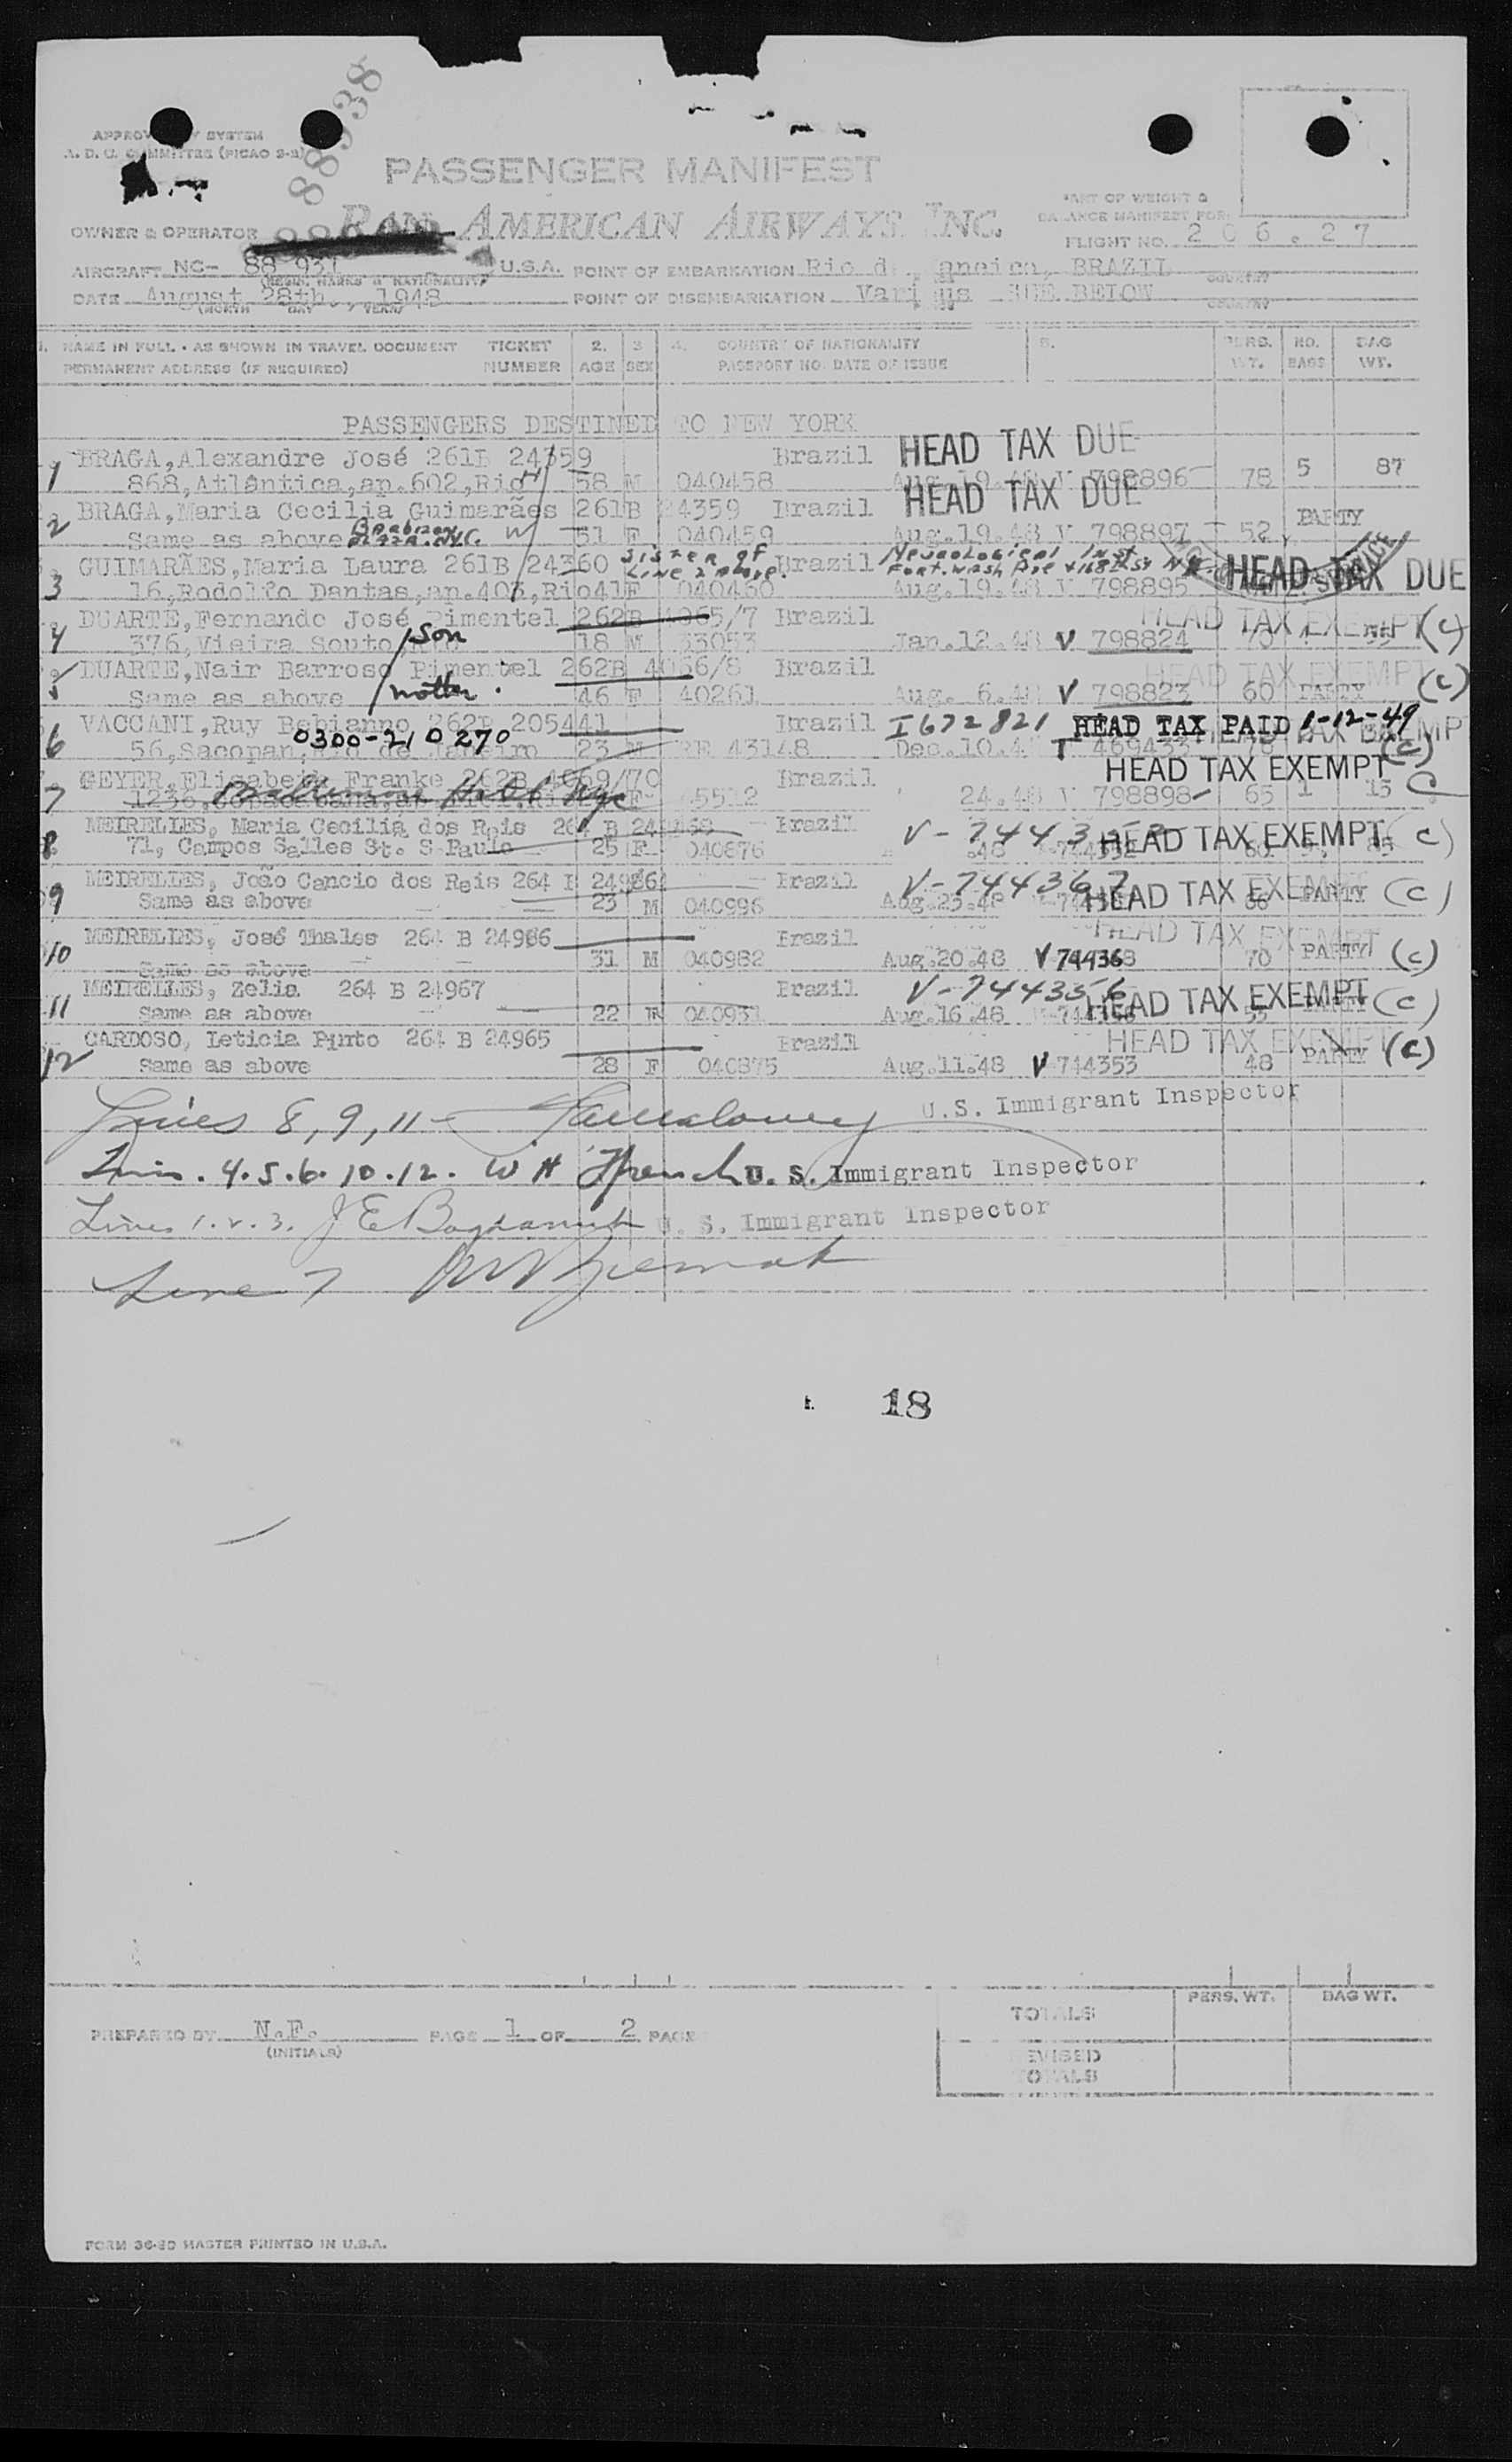 88938
APPROV Y SYSTEM
A. D. C. COMMITTEE (PICAO 2-2)
PASSENGER MANIFEST
PAN AMERICAN AIRWAYS INC.
OWNER & OPERATOR
PART OF WEIGHT &
BALANCE MANIFEST FOR
FLIGHT NO. 206.27
AIRCRAFT NC- 88 937 U.S.A. POINT OF EMBARKATION Rio d aneiro, BRAZIL
(REGIS. MARKS & NATIONALITY) COUNTRY
DATE August 28th., 1948 POINT OF DISEMBARKATION Various SEE BELOW
(MONTH DAY YEAR) COUNTRY
1. NAME IN FULL - AS SHOWN IN TRAVEL DOCUMENT TICKET 2. 3 4. COUNTRY OF NATIONALITY 5. PERS. NO. BAG
PERMANENT ADDRESS (IF REQUIRED) NUMBER AGE SEX PASSPORT NO. DATE OF ISSUE WT. BAGS WT.
PASSENGERS DESTINED TO NEW YORK
HEAD TAX DUE
1 BRAGA, Alexandre José 261B 24359 Brazil
868, Atlântica, ap. 602, Rio 58 M 040458 Aug.19.48 V 798896 78 5 87
HEAD TAX DUE
2 BRAGA, Maria Cecilia Guimarães 261B 24359 Brazil PARTY
Same as above W 51 F 040459 Aug.19.48 V 798897 52
3 GUIMARÃES, Maria Laura 261B 24360 Sister of Line 2 above. Brazil Neurological Inst Fort. Wash Ave & 168 St N.Y. HEAD TAX DUE
16, Rodolfo Dantas, ap. 403, Rio 41 F 040460 Aug.19.48 V 798895
4 DUARTE, Fernando José Pimentel 262B 4065/7 Brazil HEAD TAX EXEMPT (C)
376, Vieira Souto, Rio Son 18 M 33053 Jan.12.48 V 798824 70 1
5 DUARTE, Nair Barroso Pimentel 262B 4066/8 Brazil HEAD TAX EXEMPT (C)
Same as above mother. 46 F 40261 Aug. 6.48 V 798823 60 PARTY
6 VACCANI, Ruy Bebianno 262B 205441 Brazil I672821 HEAD TAX PAID 1-12-49
0300-210270
56, Sacopan, Rio de Janeiro 23 M 43148 Dec.10.4 T 469433 78 (C)
HEAD TAX EXEMPT
7 GEYER, Elisabeth Franke 262B 4069/70 Brazil
1236, Copacabana, Baltimore Hotel Nyc F 24.48 V 798898 65 1 15 C
8 MEIRELLES, Maria Cecilia dos Reis 264 B Brazil HEAD TAX EXEMPT C)
71, Campos Salles St. S Paulo 25 F 040876 .48
9 MEIRELLES, João Cancio dos Reis 264 B Brazil V-744367 HEAD TAX EXEMPT
Same as above 23 M 040996 Aug.23.48 PARTY (C)
10 MEIRELLES, José Thales 264 B 24986 Brazil HEAD TAX EXEMPT
Same as above 31 M 040982 Aug.20.48 V 744368 70 PARTY (C)
11 MEIRELLES, Zelia 264 B 24967 Brazil V-744356 HEAD TAX EXEMPT
Same as above 22 F 040931 Aug.16.48 PARTY (C)
12 CARDOSO, Leticia Pinto 264 B 24965 Brazil HEAD TAX EXEMPT
Same as above 28 F 040875 Aug.11.48 V 744353 48 PARTY (C)
Lines 8, 9, 11 - U.S. Immigrant Inspector
Lines. 4.5.6. 10.12. W H French U. S. Immigrant Inspector
Lines 1.2.3. J E U. S. Immigrant Inspector
Line 7
18
TOTALS PERS. WT. BAG WT.
PREPARED BY N.F. PAGE 1 OF 2 PAGE
(INITIALS)
REVISED
TOTALS
FORM 36-2D MASTER PRINTED IN U.S.A.